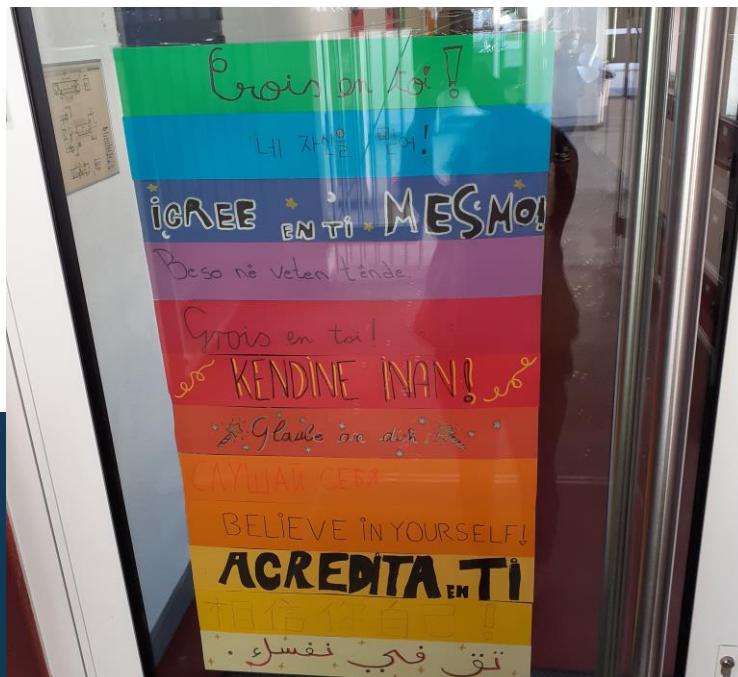 Crois en toi !
네 자신을 믿어!
¡CREE EN TI MESMO!
Beso në veten tënde.
Crois en toi !
KENDINE INAN!
Glaube an dich
СЛУШАЙ СЕБЯ
BELIEVE IN YOURSELF!
ACREDITA EN TI
相信你自己!
تق في نفسك.